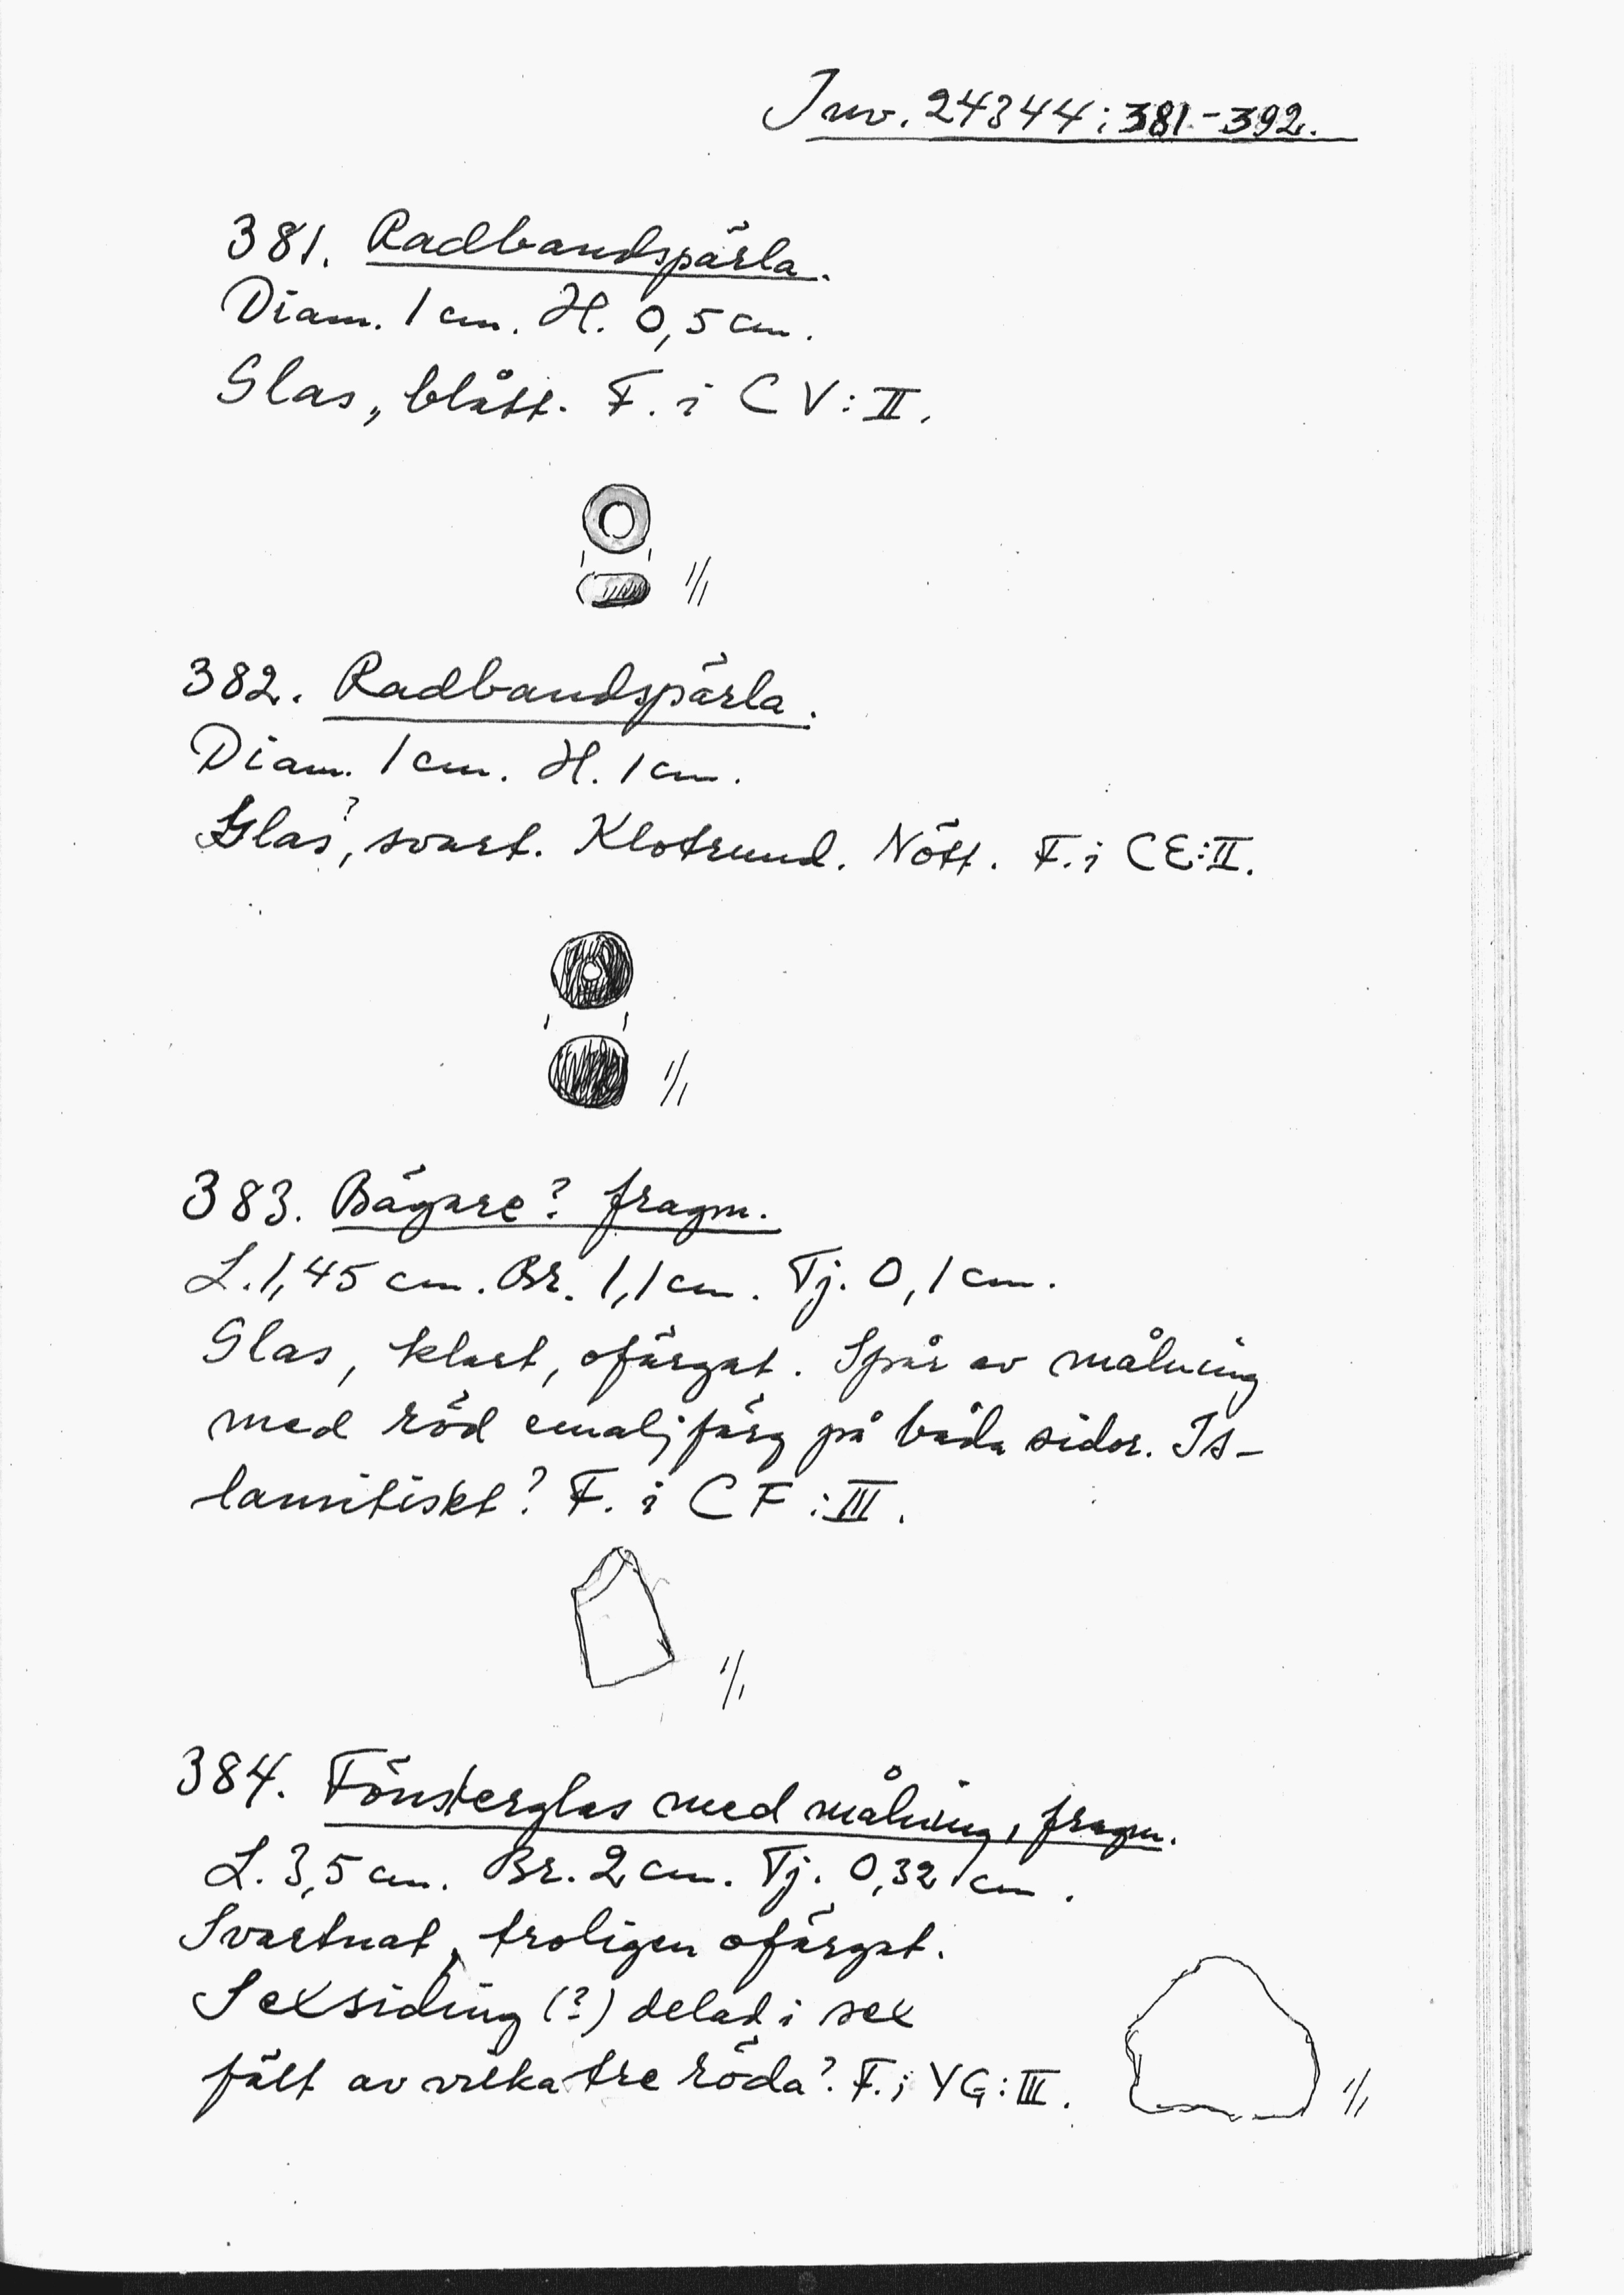 Inv. 24344:381-392.
381. Radbandspärla.
Diam. 1 cm. H. 0,5 cm.
Glas, blått. F. i CV:II.
1/1
382. Radbandspärla.
Diam. 1 cm. H. 1 cm.
Glas?, svart. Klotrund. Nött. F. i CE:II.
1/1
383. Bägare? fragm.
L. 1,45 cm. Br. 1,1 cm. Tj. 0,1 cm.
Glas, klart, ofärgat. Spår av målning
med röd emaljfärg på båda sidor. Is-
lamitiskt? F. i CF:III.
1/1
384. Fönsterglas med målning, fragm.
L. 3,5 cm. Br. 2 cm. Tj. 0,32 cm.
Svartnat, troligen ofärgat.
Sexsiding (?) delad i sex
fält av vilka tre röda? F. i YG:III.
1/1